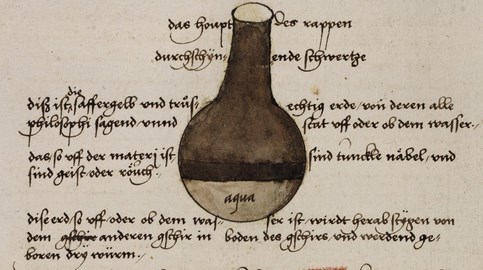 das houpt des rappen
durchschÿnende schwertze
disz ist die saffergelb vnd trüs-echtig erde, von deren alle
philosophi sagend, vnnd stat vff oder ob dem wasser.
das, so vff der materj ist sind tunckle näbel, vnd
sind geist oder röuch.
aqua
dise erd, so vff oder ob dem wasser ist, wirdt herab stÿgen von
dem anderen gschir in boden des gschirs, vnd werdend ge-
boren drÿ würm.